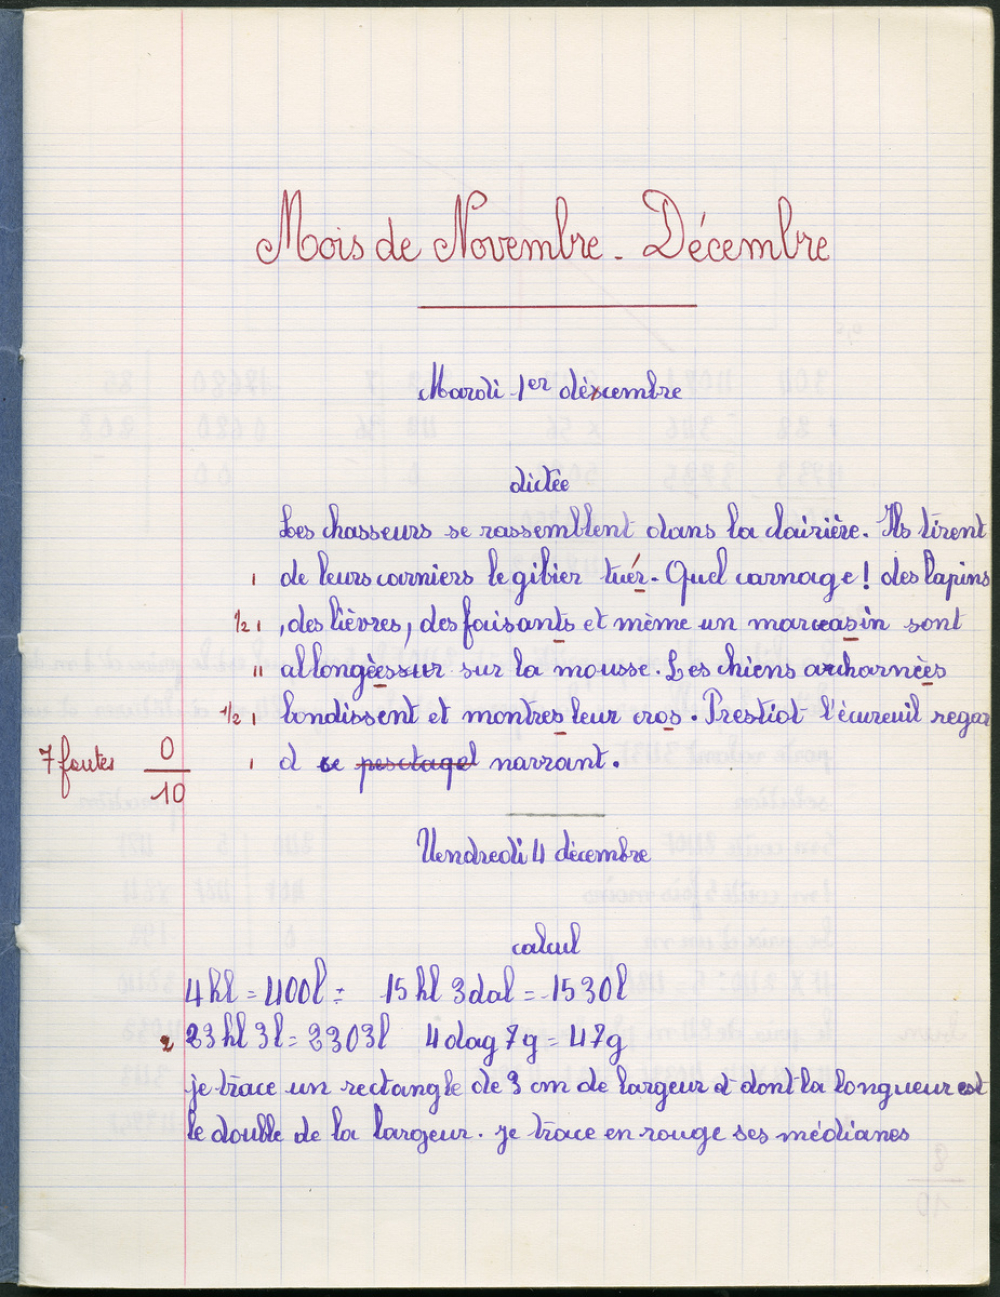 Mois de Novembre - Décembre
Mardi 1er décembre
dictée
Les chasseurs se rassemblent dans la clairière. Ils tirent
de leurs carniers le gibier tuér. Quel carnage ! des lapins
1/2 , des lièvres, des faisants et même un marcasin sont
allongées sur la mousse. Les chiens acharnées
1/2 bondissent et montres leur cros. Prestiot l'écureuil regar
7 fautes 0/10 d ce narrant.
Vendredi 4 décembre
calcul
4 hl = 400 l = 15 hl 3 dal = 1530 l
2 23 hl 3 l = 2303 l 4 dag 7 g = 47 g
je trace un rectangle de 3 cm de largeur et dont la longueur est
le double de la largeur. je trace en rouge ses médianes